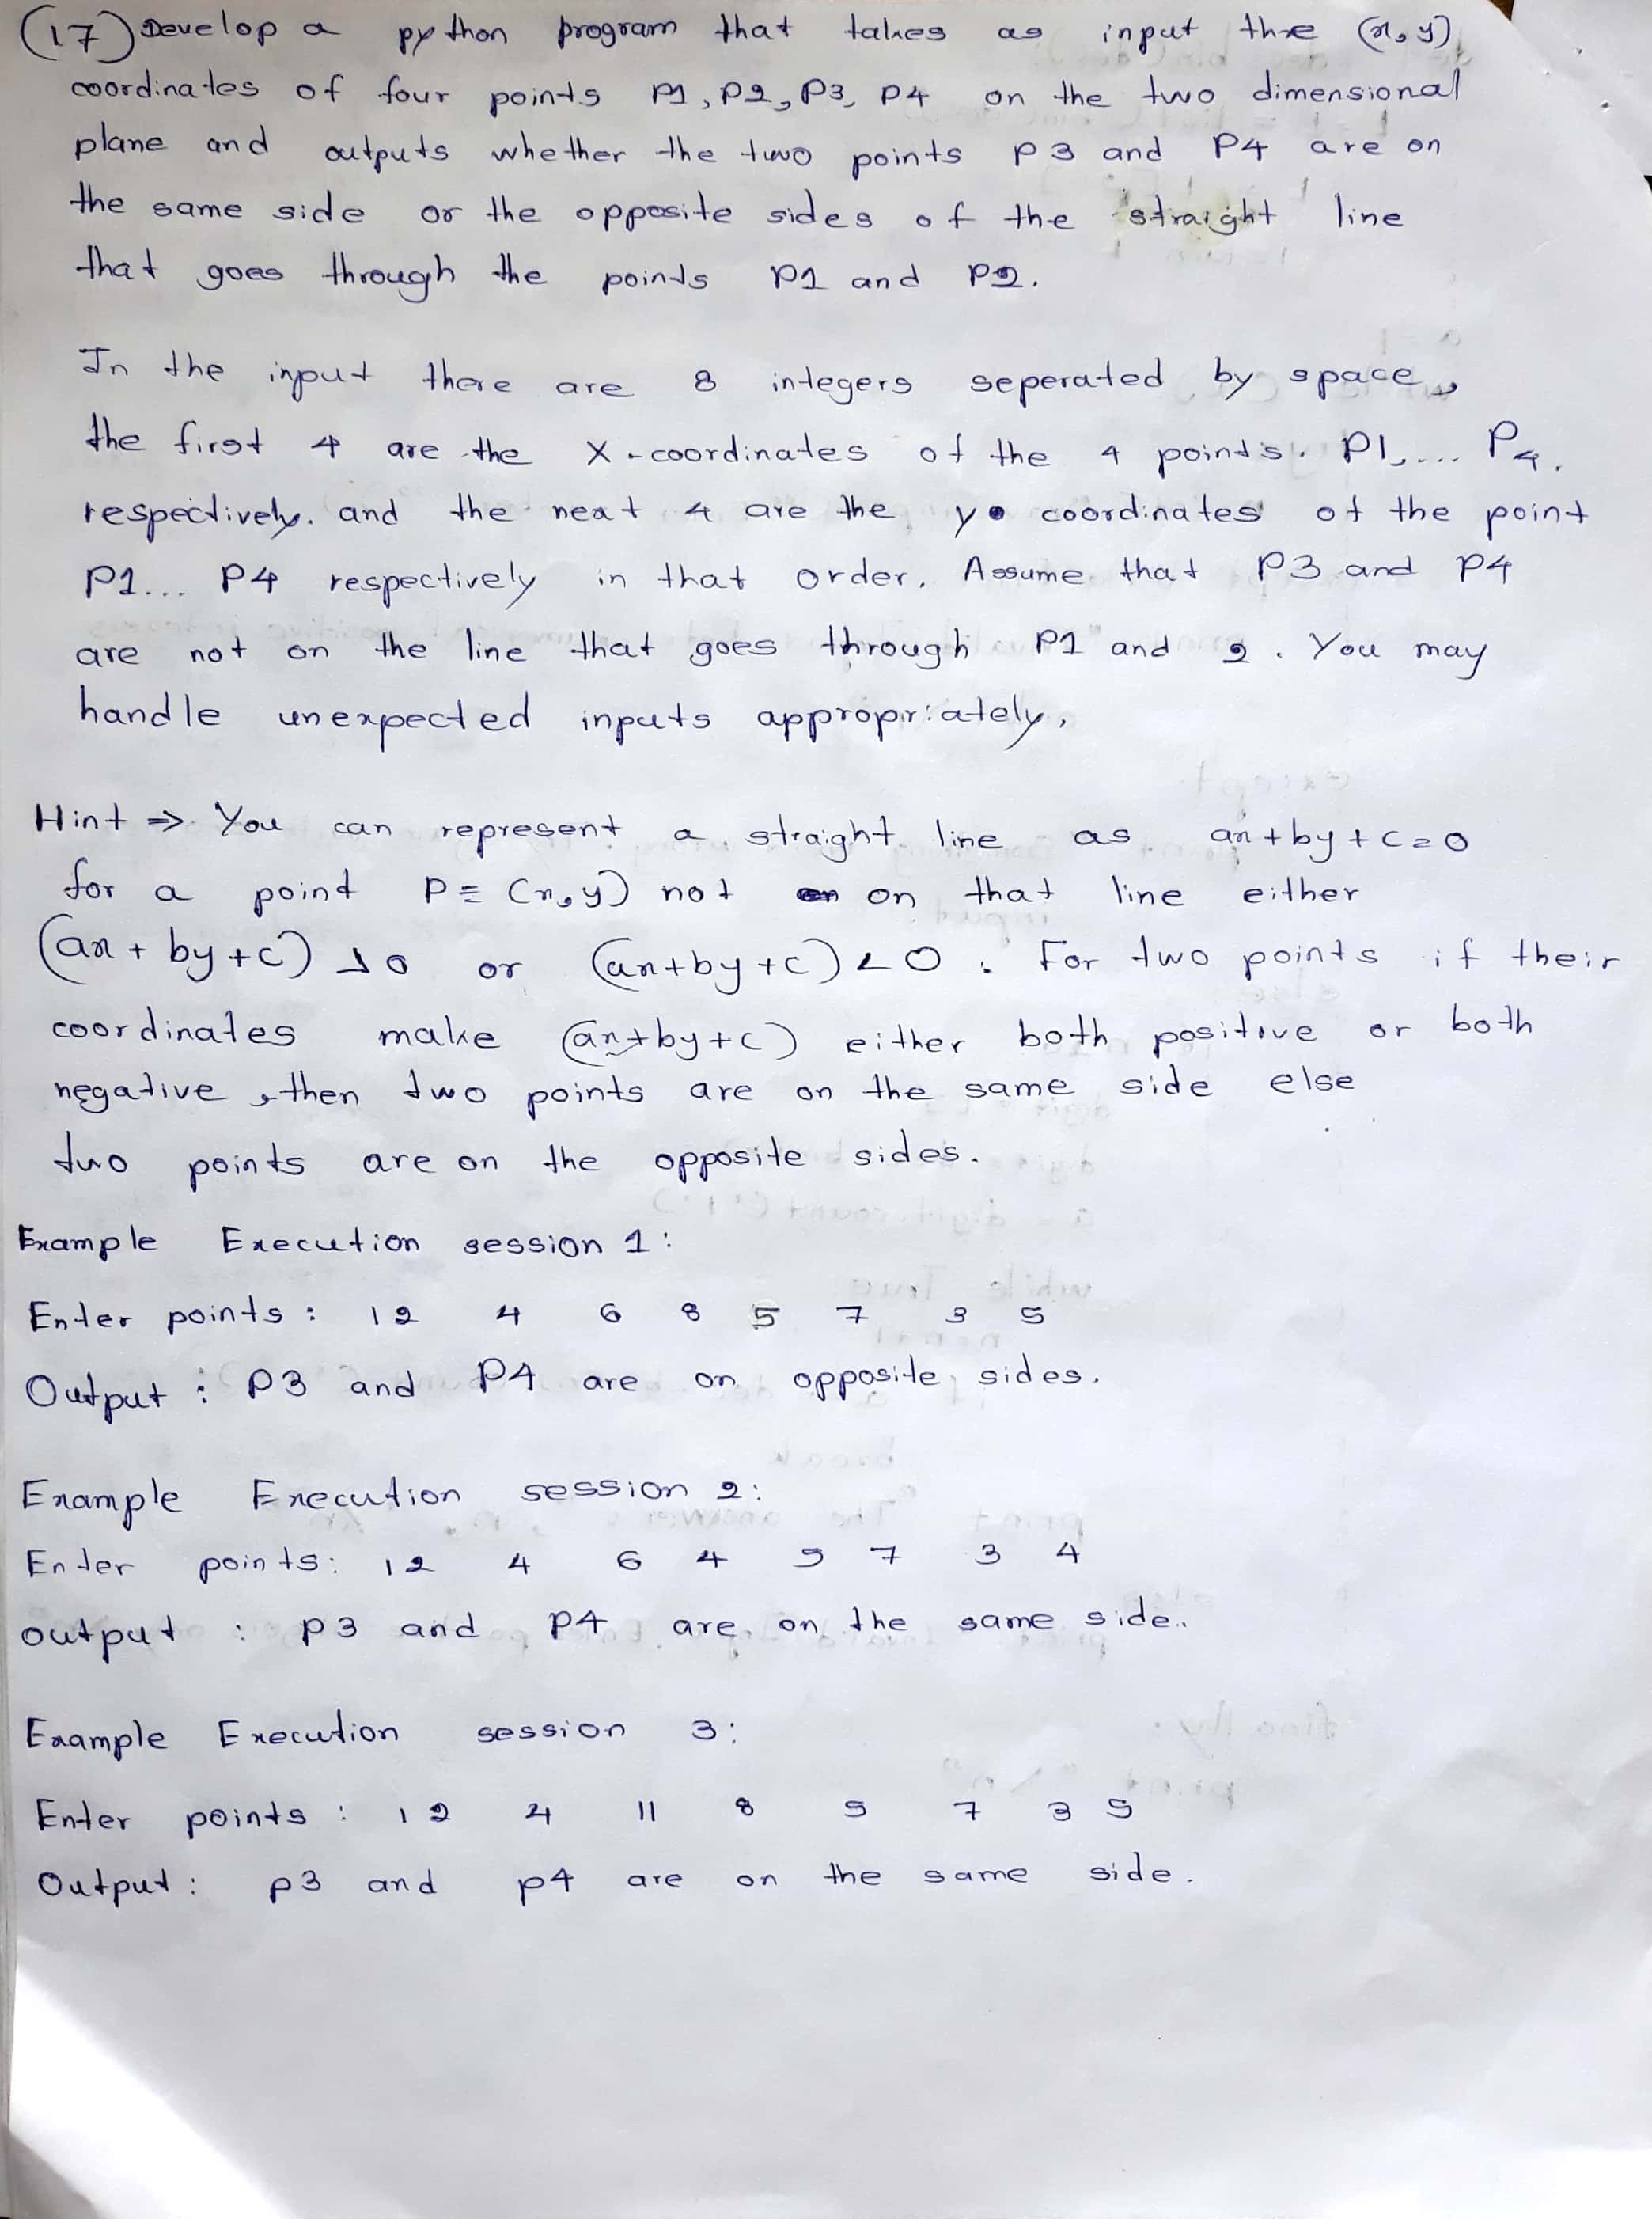 (17) Develop a python program that takes as input the (x, y)
coordinates of four points P1, P2, P3, P4 on the two dimensional
plane and outputs whether the two points P3 and P4 are on
the same side or the opposite sides of the straight line
that goes through the points P1 and P2.
In the input there are 8 integers seperated by space,
the first 4 are the X-coordinates of the 4 points. P1, ... P4.
respectively. and the next 4 are the y coordinates of the point
P1... P4 respectively in that order. Assume that P3 and P4
are not on the line that goes through P1 and 2. You may
handle unexpected inputs appropriately,
Hint ⇒ You can represent a straight line as ax + by + c = 0
for a point P ≡ (x, y) not on that line either
(ax + by + c) > 0 or (ax + by + c) < 0. For two points if their
coordinates make (ax + by + c) either both positive or both
negative, then two points are on the same side else
two points are on the opposite sides.
Example Execution session 1:
Enter points: 12 4 6 8 5 7 3 5
Output: P3 and P4 are on opposite sides.
Example Execution session 2:
Enter points: 12 4 6 4 5 7 3 4
output : P3 and P4 are on the same side.
Example Execution session 3:
Enter points : 12 4 11 8 5 7 3 5
Output: p3 and p4 are on the same side.